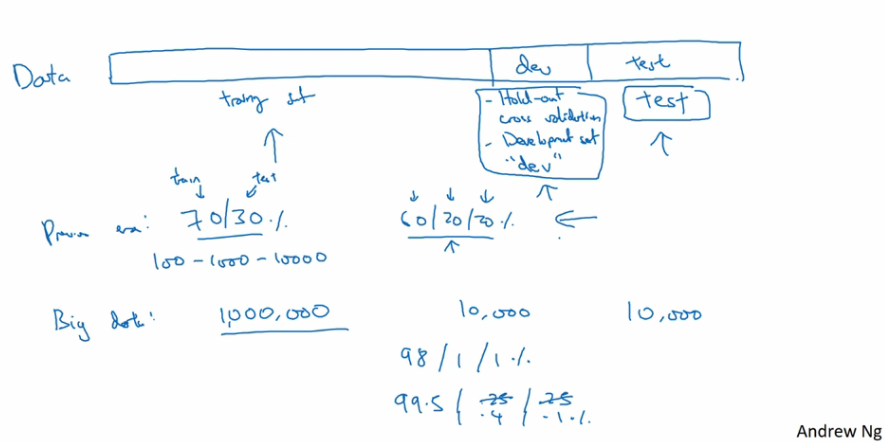 dev test
Data
training set
- Hold-out
cross validation
- Development set
"dev"
test
train test
Previous era: 70/30% 60/20/20%
100 - 1000 - 10000
Big data: 1,000,000 10,000 10,000
98 / 1 / 1%
99.5 / .25 / .25
.4 / .1%
Andrew Ng